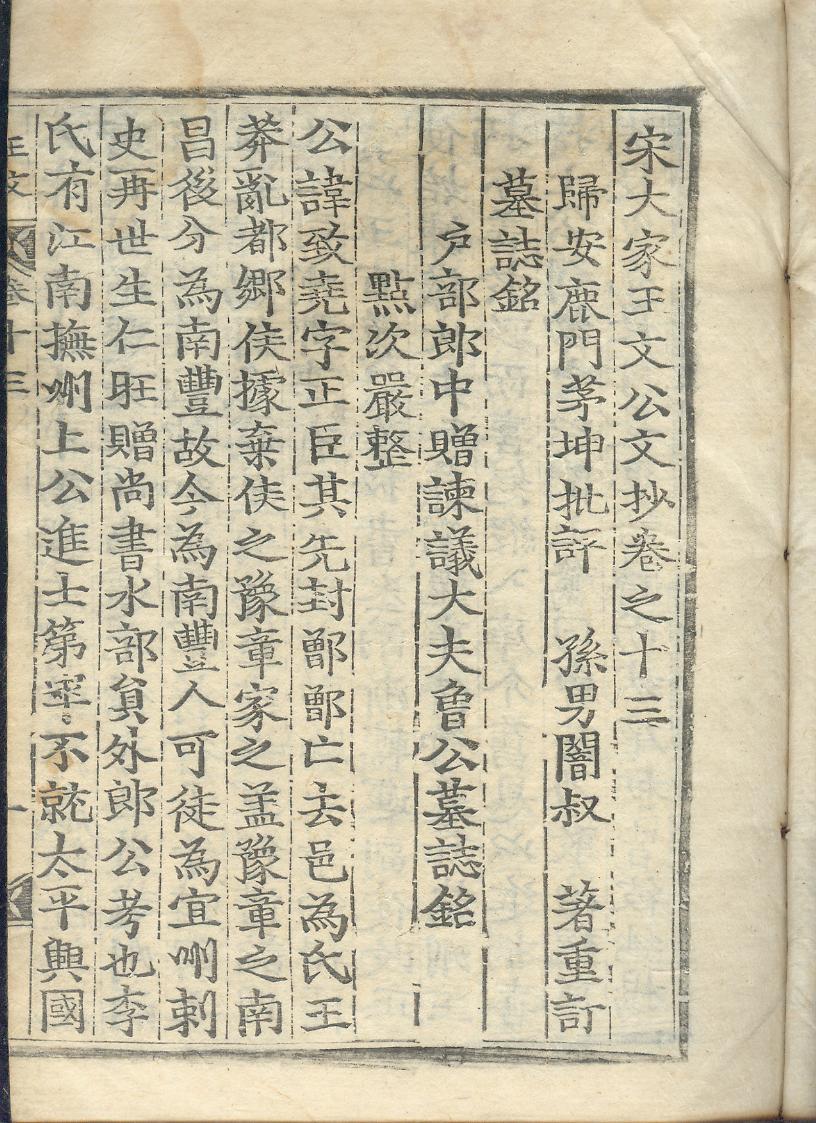 宋大家王文公文抄卷之十三
歸安鹿門茅坤批評 孫男闇叔 著重訂
墓誌銘
戶部郎中贈諫議大夫魯公墓誌銘
點次嚴整
公諱致堯字正臣其先封鄫鄫亡去邑為氏王
莽亂都鄉侯據棄侯之豫章家之盖豫章之南
昌後分為南豐故今為南豐人可徒為宜州刺
史再世生仁旺贈尚書水部負外郎公考也李
氏有江南撫州上公進士第一不就太平興國
王文 卷十三 一